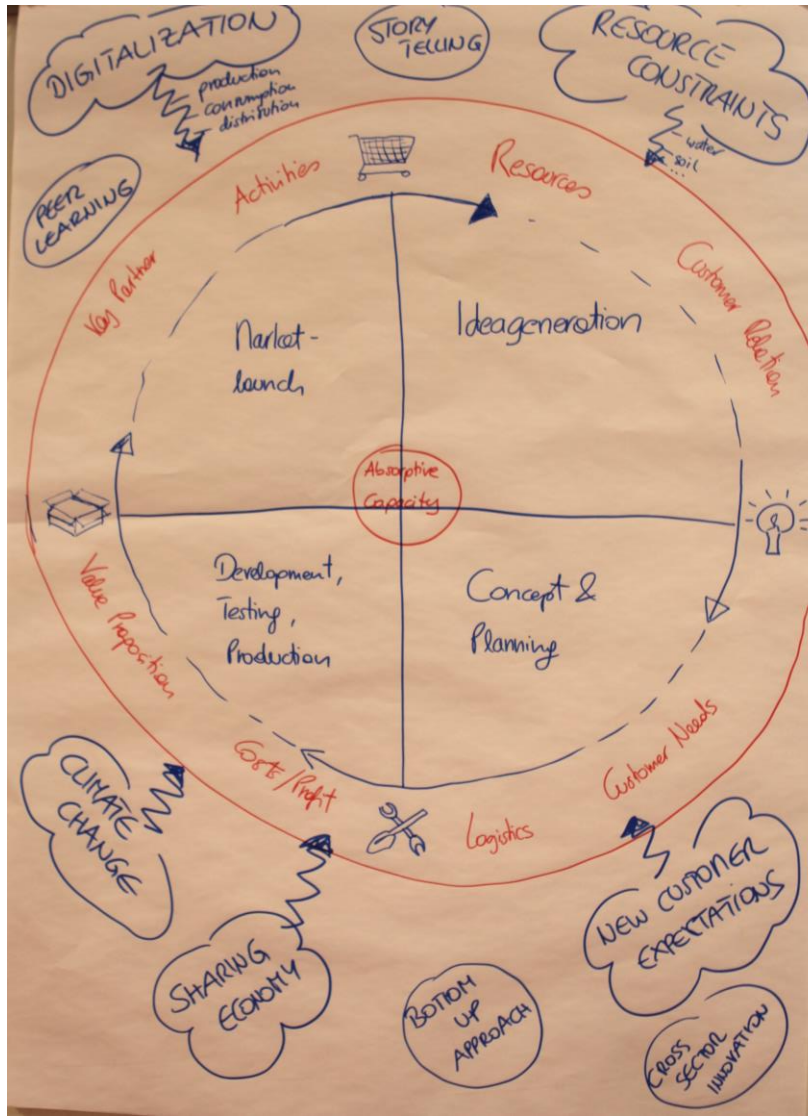 DIGITALIZATION
- production
- consumption
- distribution
STORY
TELLING
RESOURCE
CONSTRAINTS
- water
- soil
- ...
PEER
LEARNING
Activities
Resources
Key Partner
Customer Relation
Market-
launch
Ideageneration
Absorptive
Capacity
Development,
Testing,
Production
Concept &
Planning
Value Proposition
Costs/Profit
Logistics
Customer Needs
CLIMATE
CHANGE
SHARING
ECONOMY
BOTTOM
UP
APPROACH
NEW CUSTOMER
EXPECTATIONS
CROSS
SECTOR
INNOVATION